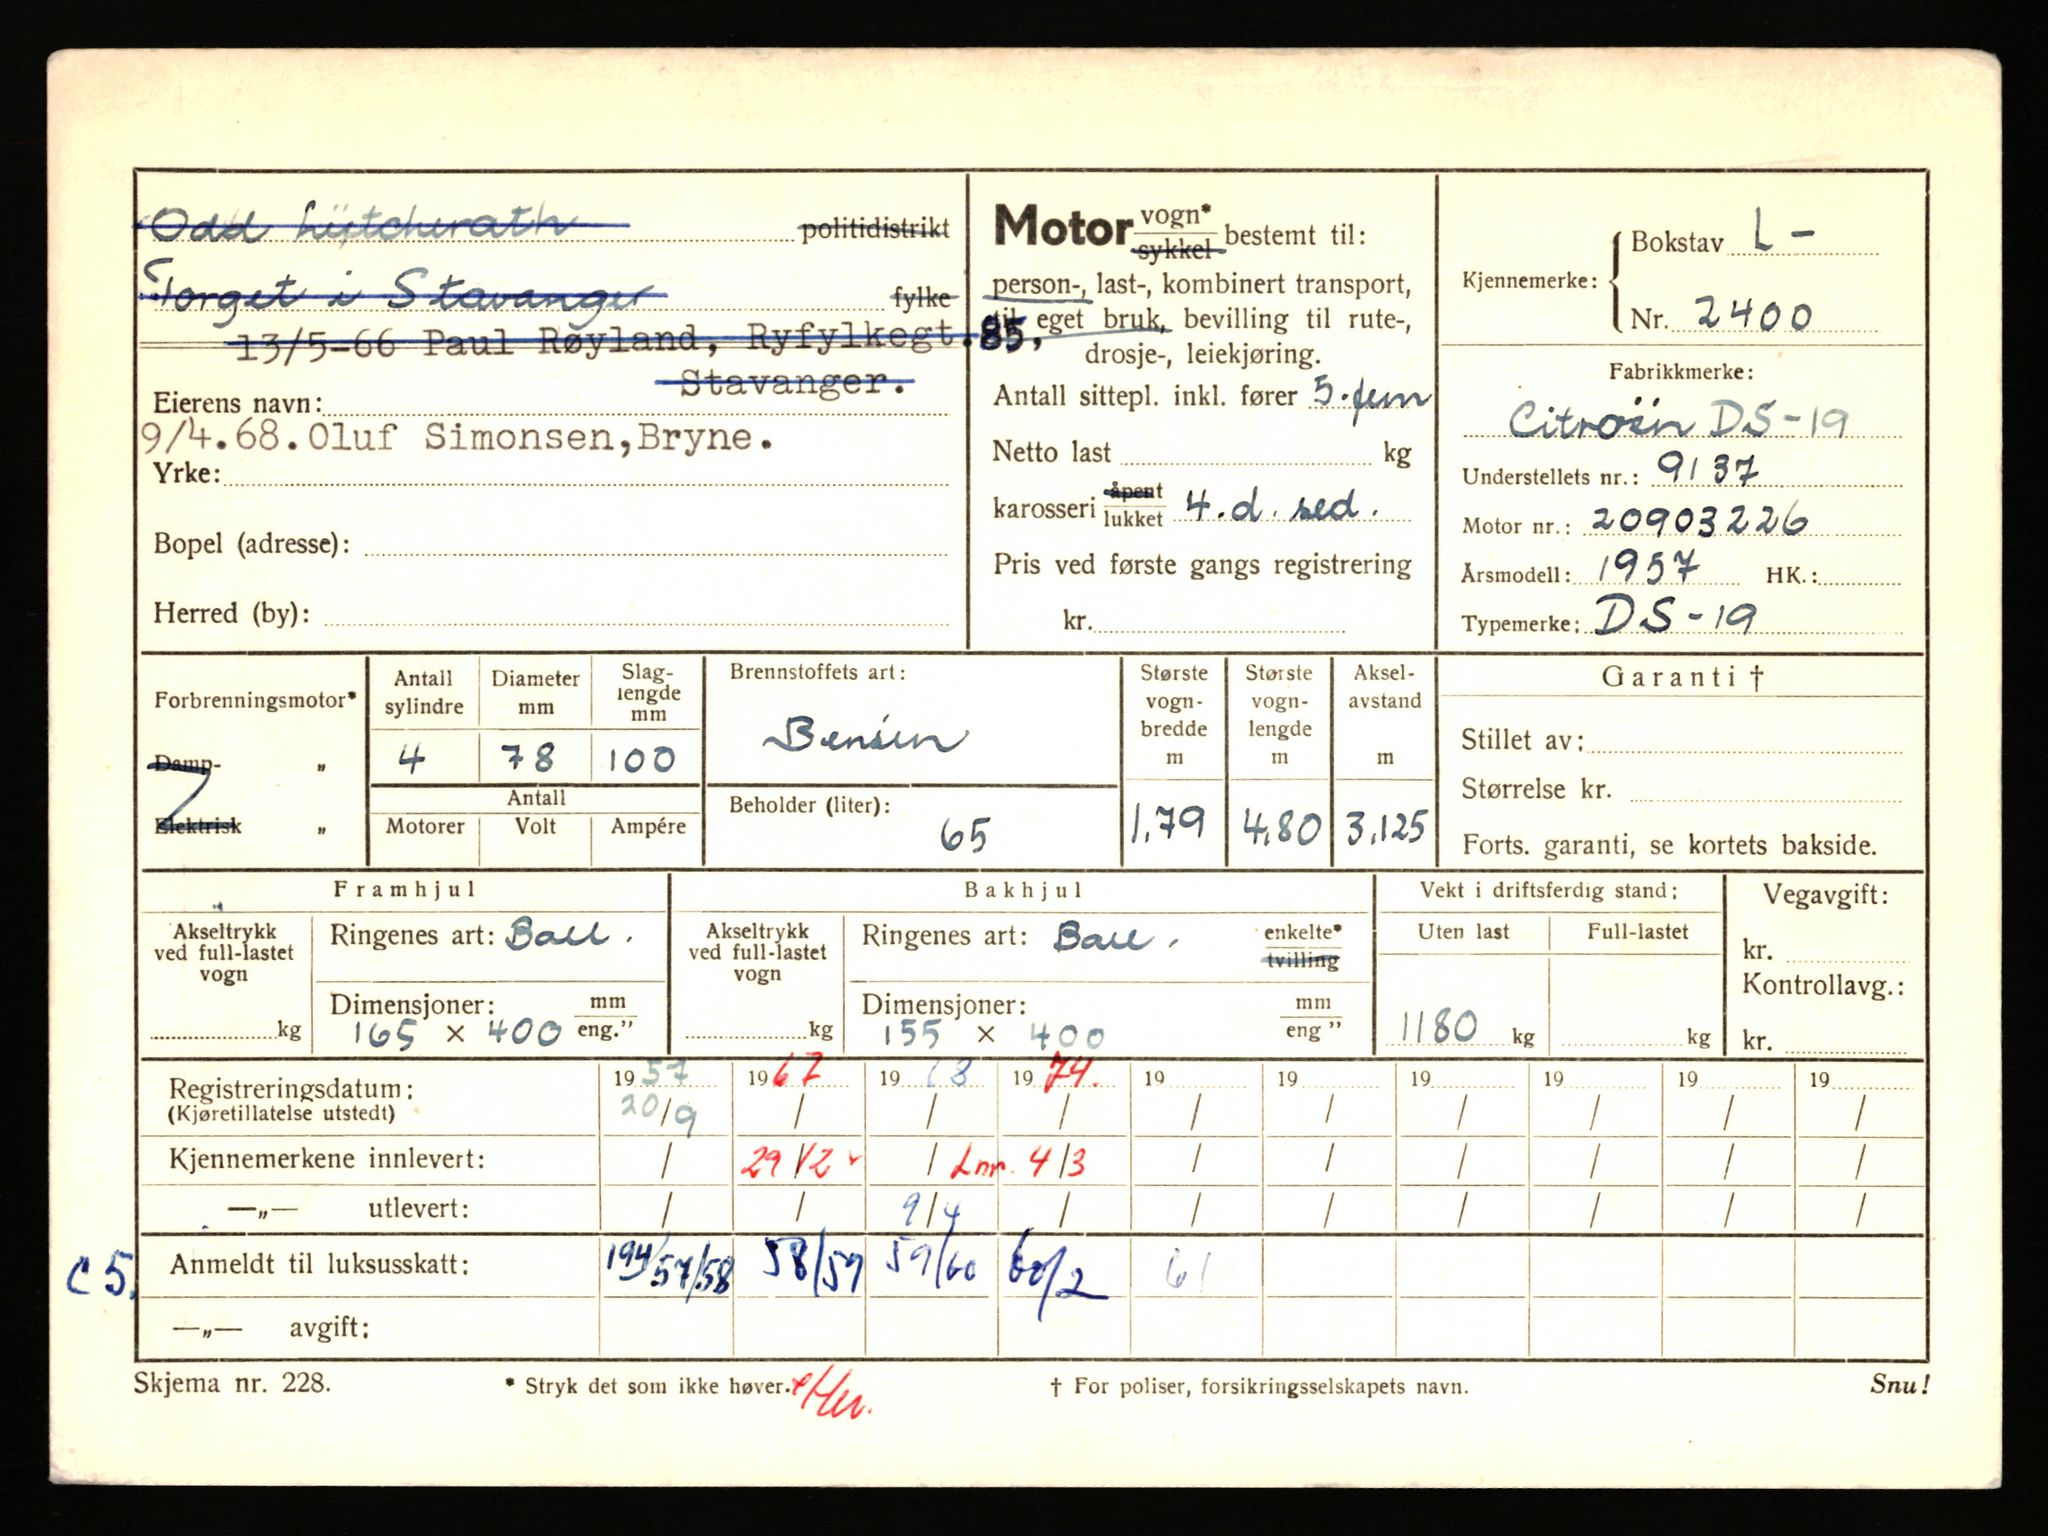 Odd Lütcherath politidistrikt
Torget i Stavanger fylke
13/5-66 Paul Røyland, Ryfylkegt.85,
Stavanger.
Eierens navn:
9/4.68.Oluf Simonsen,Bryne.
Yrke:
Bopel (adresse):
Herred (by):
Motor vogn* sykkel bestemt til:
person-, last-, kombinert transport,
til eget bruk, bevilling til rute-,
drosje-, leiekjøring.
Antall sittepl. inkl. fører 5. fem
Netto last kg
karosseri åpent lukket 4. d. sed.
Pris ved første gangs registrering
kr.
Kjennemerke: Bokstav L -
Nr. 2400
Fabrikkmerke:
Citroën DS-19
Understellets nr.: 9137
Motor nr.: 20903226
Årsmodell: 1957 HK.:
Typemerke: DS-19
Forbrenningsmotor*
Damp- „
Elektrisk „
Antall sylindre Diameter mm Slag-lengde mm
4 78 100
Antall
Motorer Volt Ampére
Brennstoffets art:
Bensin
Beholder (liter):
65
Største vogn-bredde m Største vogn-lengde m Aksel-avstand m
1,79 4,80 3,125
Garanti †
Stillet av:
Størrelse kr.
Forts. garanti, se kortets bakside.
Framhjul
Akseltrykk ved full-lastet vogn
kg
Ringenes art: Ball.
Dimensjoner: mm eng."
165 x 400
Bakhjul
Akseltrykk ved full-lastet vogn
kg
Ringenes art: Ball. enkelte* tvilling
Dimensjoner: mm eng "
155 x 400
Vekt i driftsferdig stand:
Uten last Full-lastet
1180 kg kg
Vegavgift:
kr.
Kontrollavg.:
kr.
Registreringsdatum: 19 57 19 67 19 68 19 74. 19 19 19 19 19 19
(Kjøretillatelse utstedt) 20/9 / / / / / / / / /
Kjennemerkene innlevert: / 29/12 / Lnr. 4/3 / / / / / /
—„— utlevert: / / 9/4 / / / / / / /
C 5. Anmeldt til luksusskatt: 194/57/58 58/59 59/60 60/2 61
—„— avgift:
Skjema nr. 228. * Stryk det som ikke høver. † For poliser, forsikringsselskapets navn. Snu!